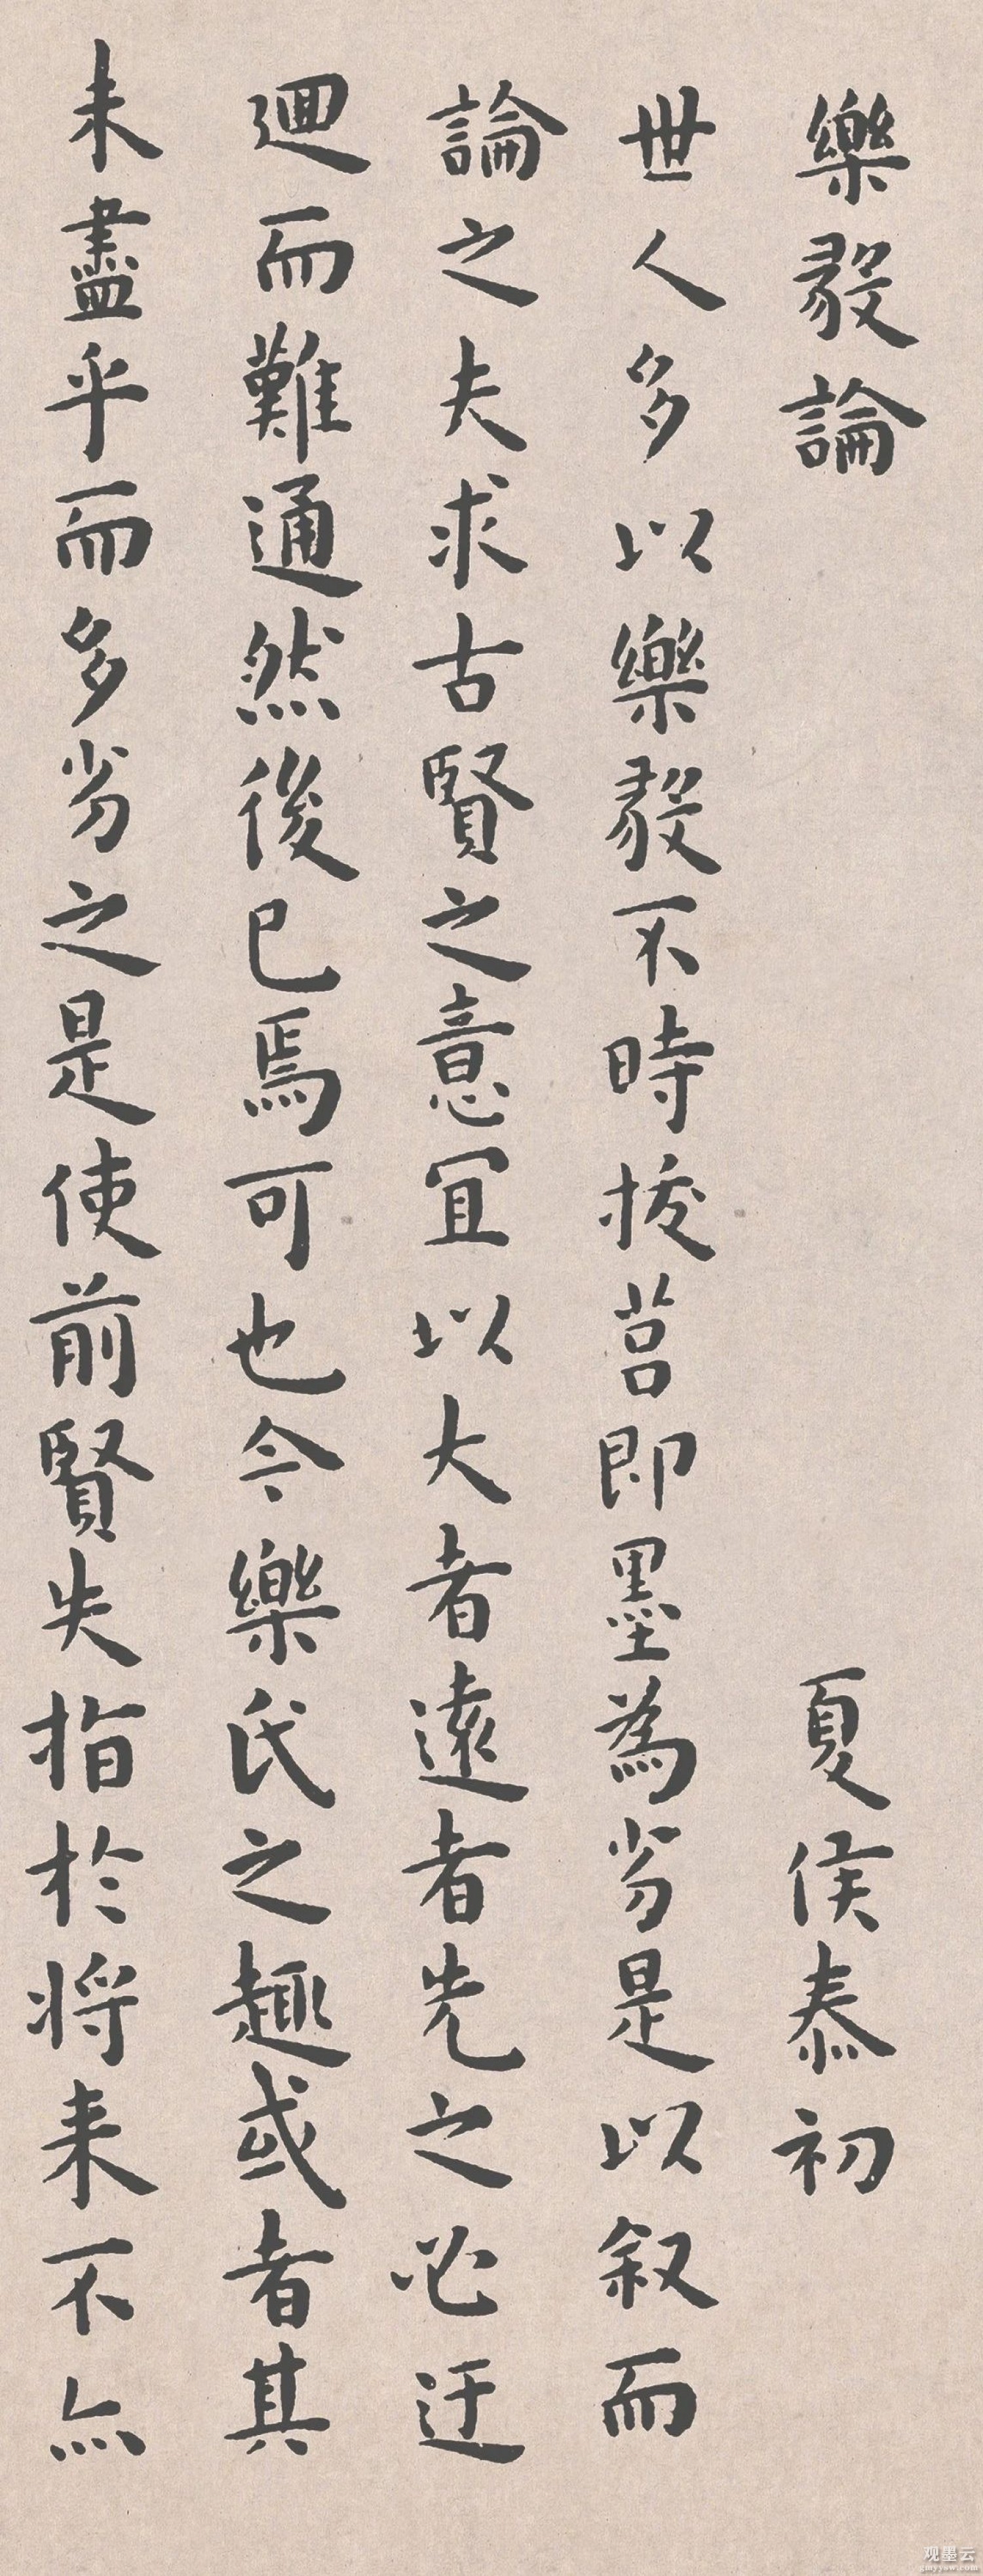 樂毅論 夏侯泰初
世人多以樂毅不時拔莒即墨為劣是以叙而
論之夫求古賢之意宜以大者遠者先之必迂
迴而難通然後已焉可也今樂氏之趣或者其
未盡乎而多劣之是使前賢失指於将来不亦
观墨云
gmyysw.com